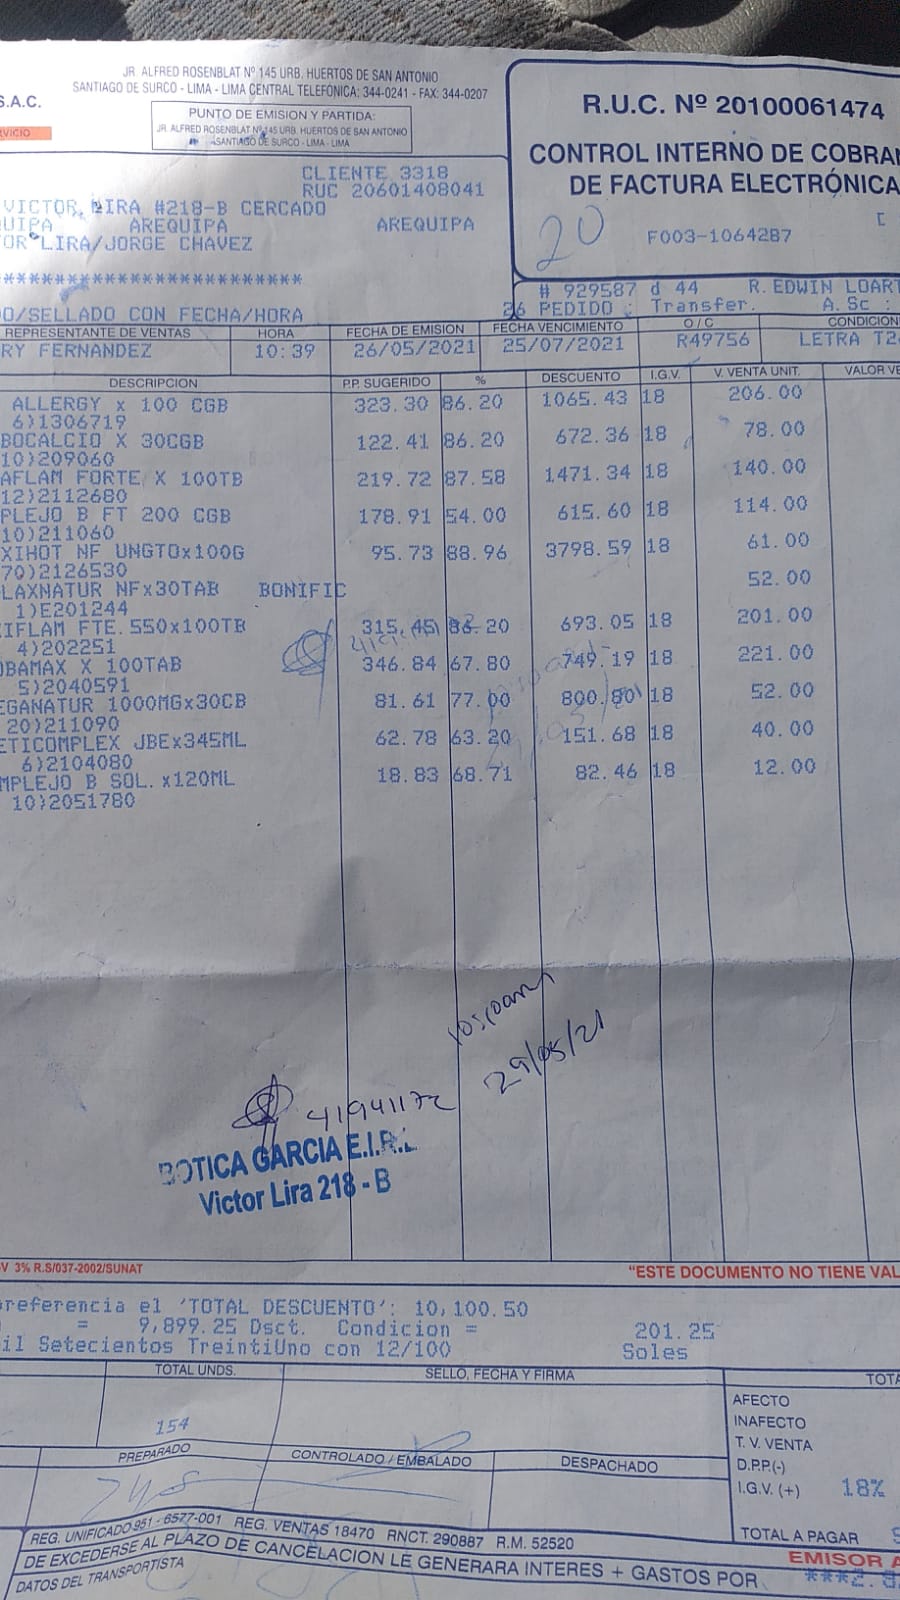 JR. ALFRED ROSENBLAT Nº 145 URB. HUERTOS DE SAN ANTONIO
SANTIAGO DE SURCO - LIMA - LIMA CENTRAL TELEFÓNICA: 344-0241 - FAX: 344-0207
S.A.C.
RVICIO
PUNTO DE EMISION Y PARTIDA:
JR. ALFRED ROSENBLAT Nº 145 URB. HUERTOS DE SAN ANTONIO
SANTIAGO DE SURCO - LIMA - LIMA
R.U.C. Nº 20100061474
CONTROL INTERNO DE COBRAN
DE FACTURA ELECTRÓNICA
20
F003-1064287
CLIENTE 3318
RUC 20601408041
VICTOR LIRA #218-B CERCADO
UIPA AREQUIPA AREQUIPA
OR LIRA/JORGE CHAVEZ
*************************
# 929587 d 44 R. EDWIN LOART
DO/SELLADO CON FECHA/HORA
26 PEDIDO : Transfer. A. Sc :
REPRESENTANTE DE VENTAS HORA FECHA DE EMISION FECHA VENCIMIENTO O / C CONDICION
RY FERNANDEZ 10:39 26/05/2021 25/07/2021 R49756 LETRA T2
DESCRIPCION P.P. SUGERIDO % DESCUENTO I.G.V. V. VENTA UNIT. VALOR VE
ALLERGY x 100 CGB 323.30 86.20 1065.43 18 206.00
6)1306719
BOCALCIO X 30CGB 122.41 86.20 672.36 18 78.00
10)209060
AFLAM FORTE X 100TB 219.72 87.58 1471.34 18 140.00
12)2112680
PLEJO B FT 200 CGB 178.91 54.00 615.60 18 114.00
10)211060
XIHOT NF UNGTOx100G 95.73 88.96 3798.59 18 61.00
70)2126530
LAXNATUR NFx30TAB BONIFIC 52.00
1)E201244
IFLAM FTE.550x100TB 315.45 86.20 693.05 18 201.00
4)202251
OBAMAX X 100TAB 346.84 67.80 749.19 18 221.00
5)2040591
EGANATUR 1000MGx30CB 81.61 77.00 800.80 18 52.00
20)211090
ETICOMPLEX JBEx345ML 62.78 63.20 151.68 18 40.00
6)2104080
MPLEJO B SOL. x120ML 18.83 68.71 82.46 18 12.00
10)2051780
41941172 29/05/21
BOTICA GARCIA E.I.R.L
Victor Lira 218 - B
V 3% R.S/037-2002/SUNAT
"ESTE DOCUMENTO NO TIENE VAL
referencia el 'TOTAL DESCUENTO': 10,100.50
= 9,899.25 Dsct. Condicion = 201.25
il Setecientos TreintiUno con 12/100 Soles
TOTAL UNDS. SELLO, FECHA Y FIRMA TOTA
154
AFECTO
INAFECTO
T. V. VENTA
D.P.P.(-)
I.G.V. (+) 18%
TOTAL A PAGAR
PREPARADO CONTROLADO / EMBALADO DESPACHADO
REG. UNIFICADO 951 - 6577-001 REG. VENTAS 18470 RNCT. 290887 R.M. 52520
EMISOR A
DE EXCEDERSE AL PLAZO DE CANCELACION LE GENERARA INTERES + GASTOS POR
DATOS DEL TRANSPORTISTA